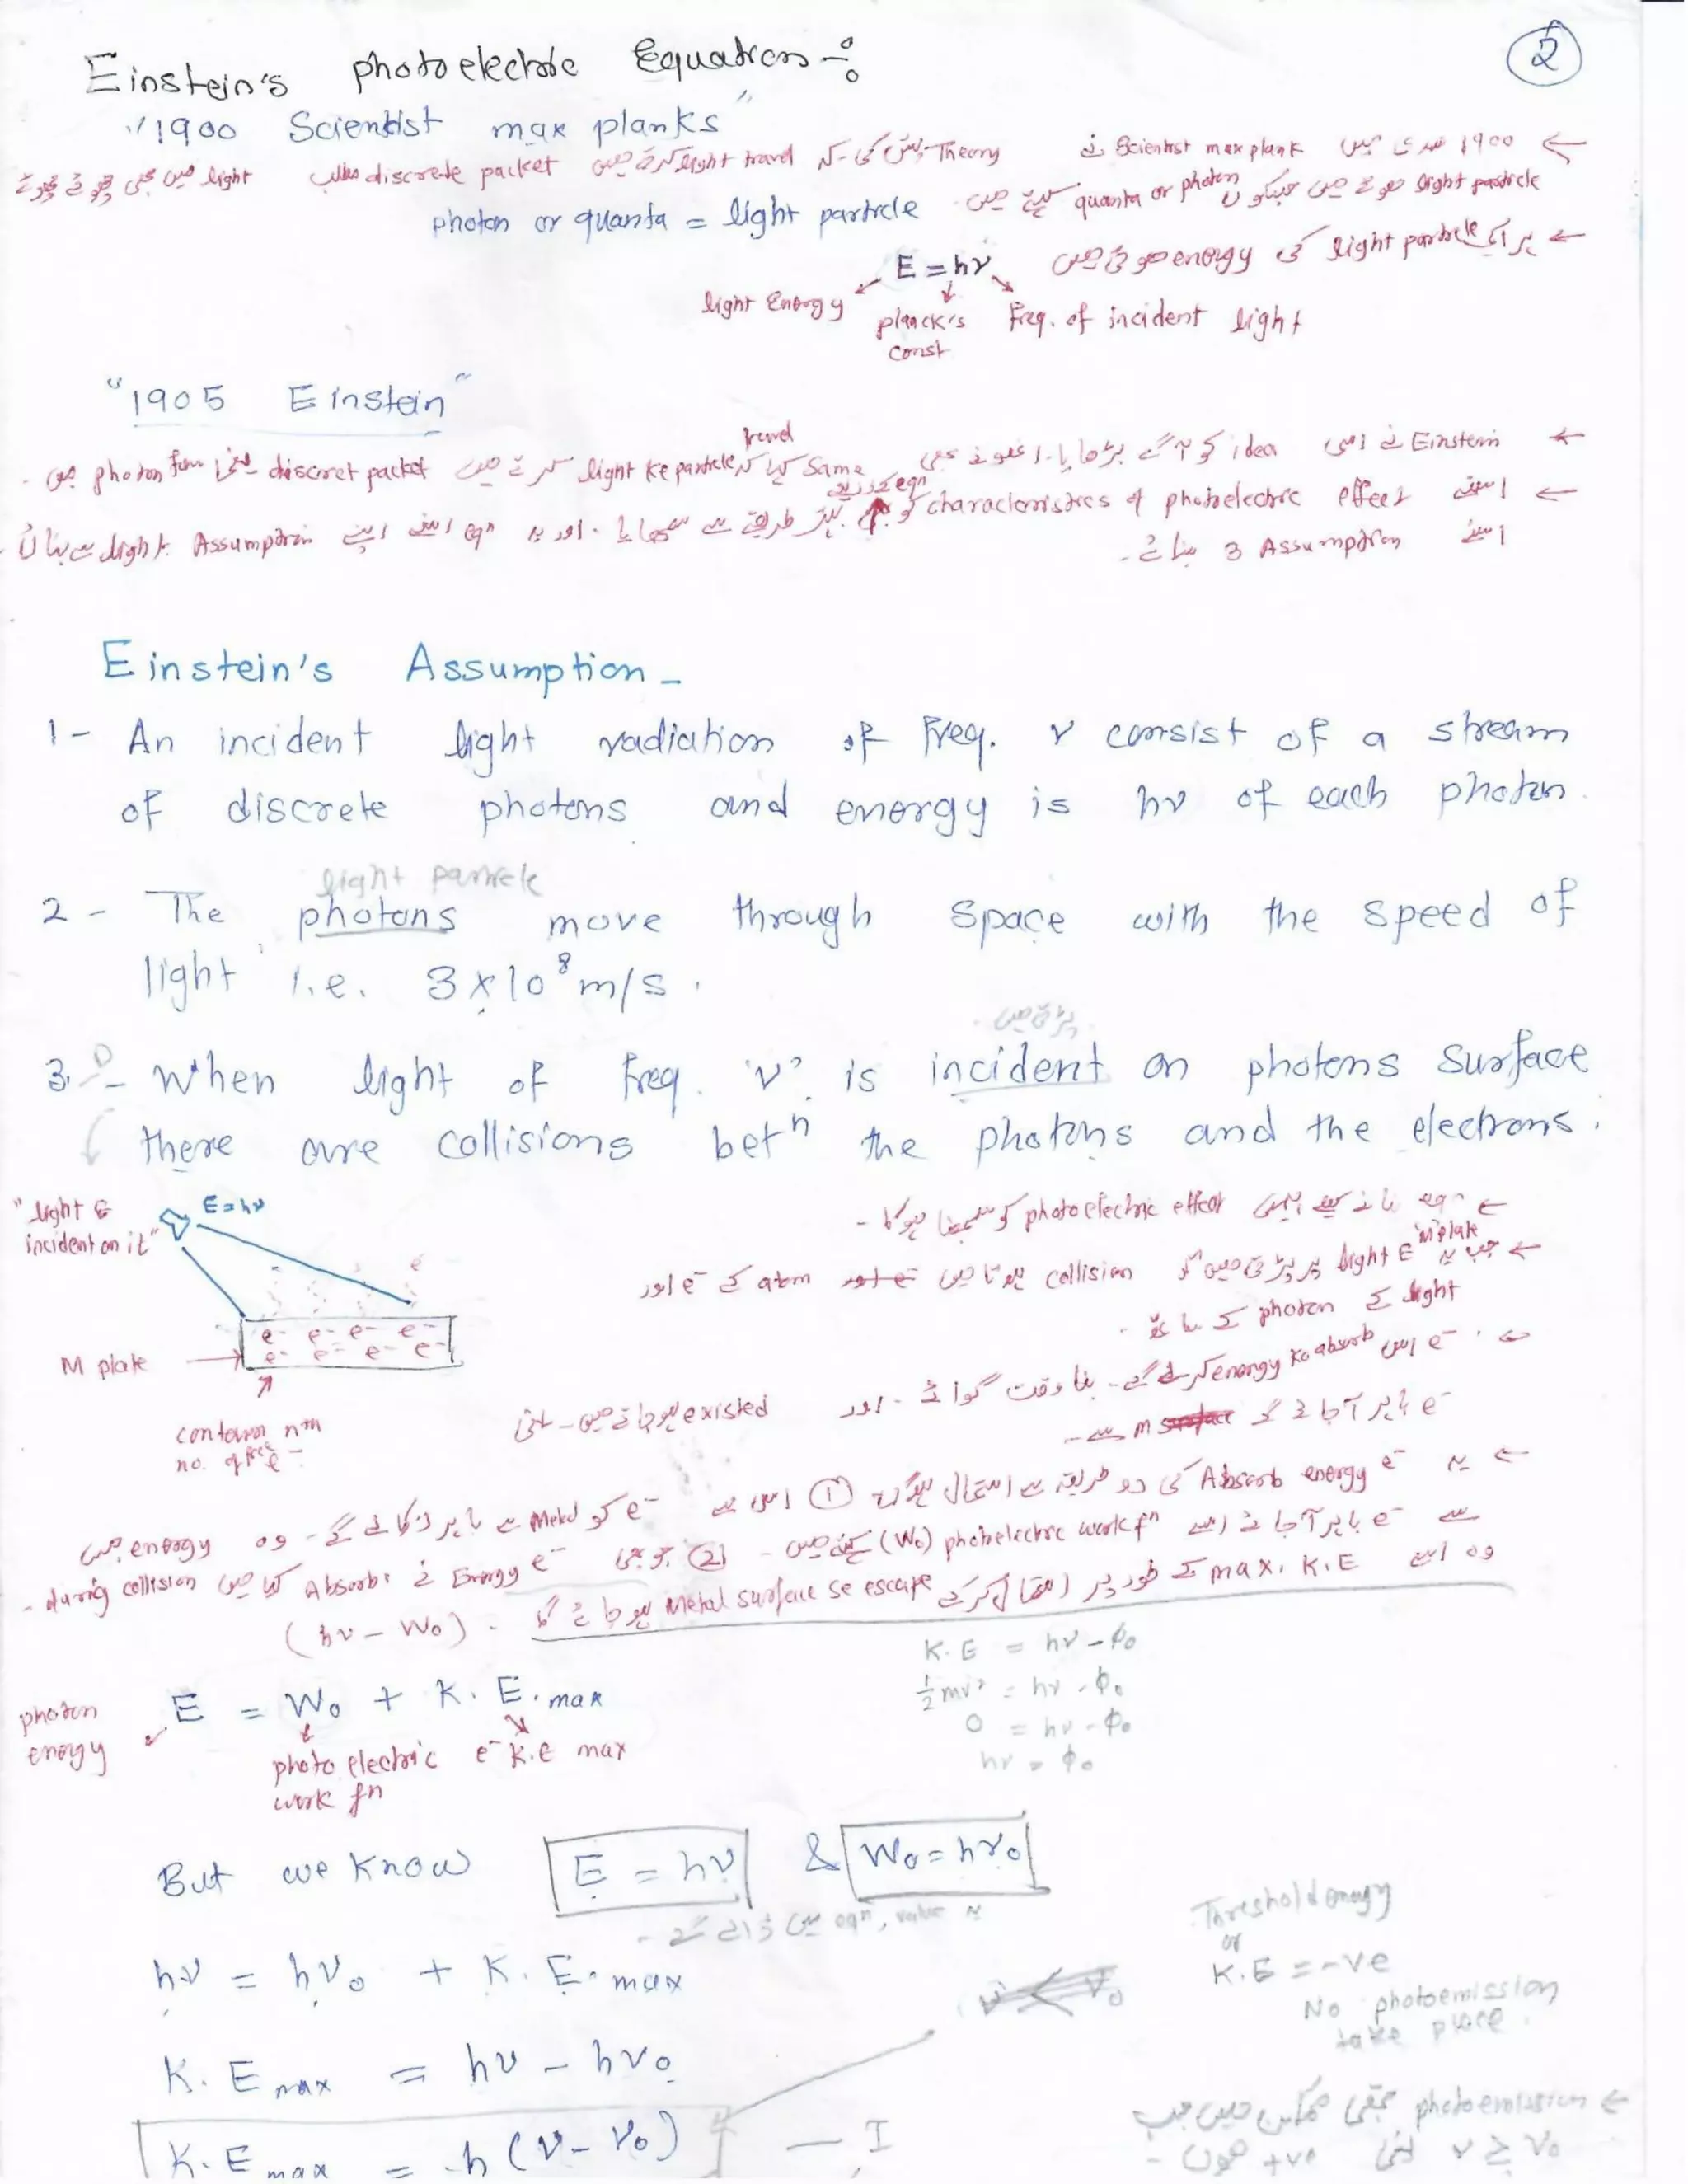 Einstein's photoelectric Equation :-
2
"1900 Scientist max planks"
← 1900 صدی میں Scientist max plank نے Theory پیش کی۔ کہ light travel کرتے ہیں discrete packet مطلب light میں بھی چھوٹے چھوٹے
light particle ہوتے ہیں جسکو quanta or photon کہتے ہیں۔
photon or quanta = light particle
← ہر ایک light particle کی energy ہوتی ہیں
E = hν
light Energy
planck's const
freq. of incident light
"1905 Einstein"
← Einstein نے اسی idea کو آگے بڑھایا۔ انھونے بھی same کہا کہ light ke particle travel کرتے ہیں discret packet یعنی photon form میں۔
← اسنے photoelectric effect of characteristics کو eqn کے ذریعے بہتر طریقے سے سمجھایا۔ اور یہ eqn اسنے اپنے Assumption light سے بنائی۔
اسنے 3 Assumption بنائے۔
Einstein's Assumption -
1- An incident light radiation of freq. ν consist of a stream
of discrete photons and energy is hν of each photon.
light particle
2- The photons move through space with the speed of
light i.e. 3×10⁸ m/s.
پڑتی ہیں
3. - When light of freq. 'ν' is incident on photons surface
there are collisions betⁿ the photons and the electrons.
"light E incident on it"
E = hν
e⁻ e⁻ e⁻ e⁻
e⁻ e⁻ e⁻ e⁻
M plate
no. of free e⁻
← eqⁿ بنانے کیلئے ہمیں photoelectric effect کو سمجھنا ہوگا۔
← جب یہ light E M plate پر پڑتی ہیں تو collision ہوتا ہیں atom کے e⁻ اور
light کے photon کے ساتھ۔
e⁻ اس energy ko absorb کرلے گے۔ بنا وقت گوائے۔ اور existed ہوجاتے ہیں۔
e⁻ باہر آجائے گے M سے۔
← یہ e⁻ Absorb energy کی دو طریقہ سے استعمال ① اس سے e⁻ کو Metal سے باہر نکالے گے۔ وہ energy جس
سے e⁻ باہر آجائے اسے (W₀) photoelectric work fⁿ کہتے ہیں۔ ② جو بھی e⁻ نے Energy Absorb کیا ہیں during collision۔
وہ اسے max. K.E کے طور پر استعمال کرکے Metal surface se escape ہوجائے گا۔ (hν - W₀)
K.E = hν - φ₀
½mv² = hν - φ₀
0 = hν - φ₀
hν = φ₀
E = W₀ + K.E.max
photon energy
photo electric work fn
e⁻ K.E max
But we know E = hν & W₀ = hν₀
یہ value, eqⁿ میں ڈالے گے۔
hν = hν₀ + K.E.max
Threshold energy
or
K.E = -ve
No photoemission
take place.
K.Emax = hν - hν₀
K.Emax = h(ν - ν₀) — I
← photoemission تبھی ممکن ہیں جب
ν ≥ ν₀ یعنی +ve ہوں۔